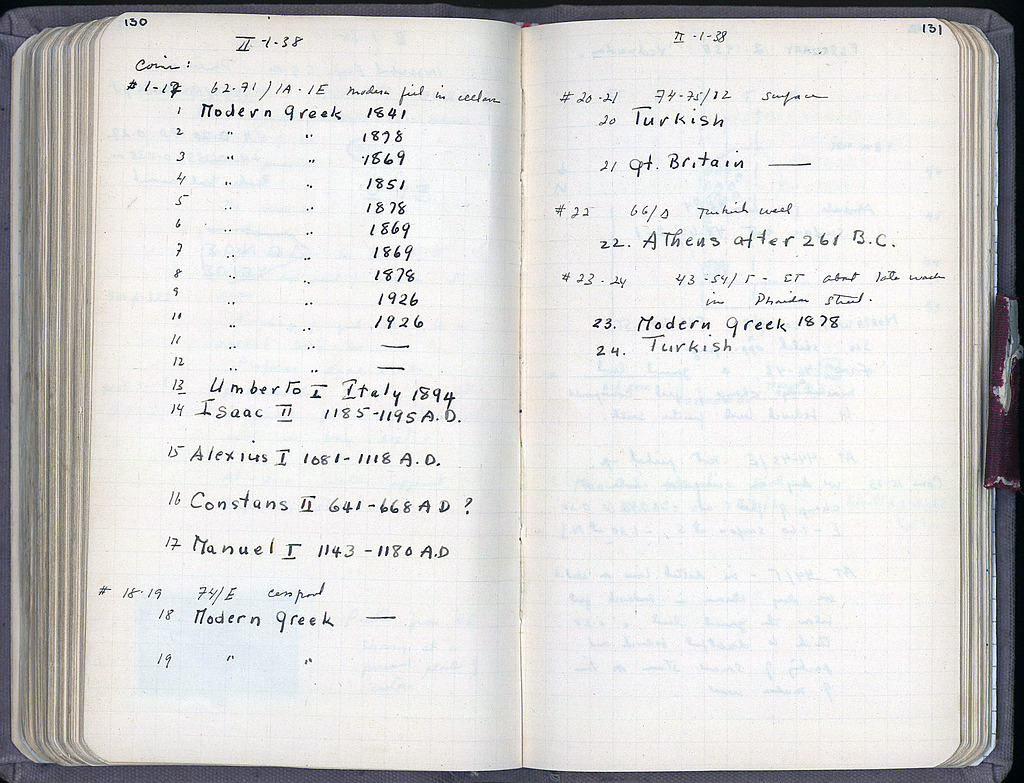 130
II-1-38
Coins:
#1-17 62-71/IA-IE modern fill in cellar
1 Modern Greek 1841
2 " " 1878
3 " " 1869
4 " " 1851
5 " " 1878
6 " " 1869
7 " " 1869
8 " " 1878
9 " " 1926
10 " " 1926
11 " " —
12 " " —
13 Umberto I Italy 1894
14 Isaac II 1185-1195 A.D.
15 Alexius I 1081-1118 A.D.
16 Constans II 641-668 A D ?
17 Manuel I 1143-1180 A.D
# 18-19 74/E cesspool
18 Modern Greek —
19 " "
131
II-1-38
#20-21 74-75/ surface
20 Turkish
21 Gt. Britain —
#22 66/ Turkish well
22. Athens after 261 B.C.
#23-24 43-54/ - about late wash
in Street.
23. Modern Greek 1878
24. Turkish